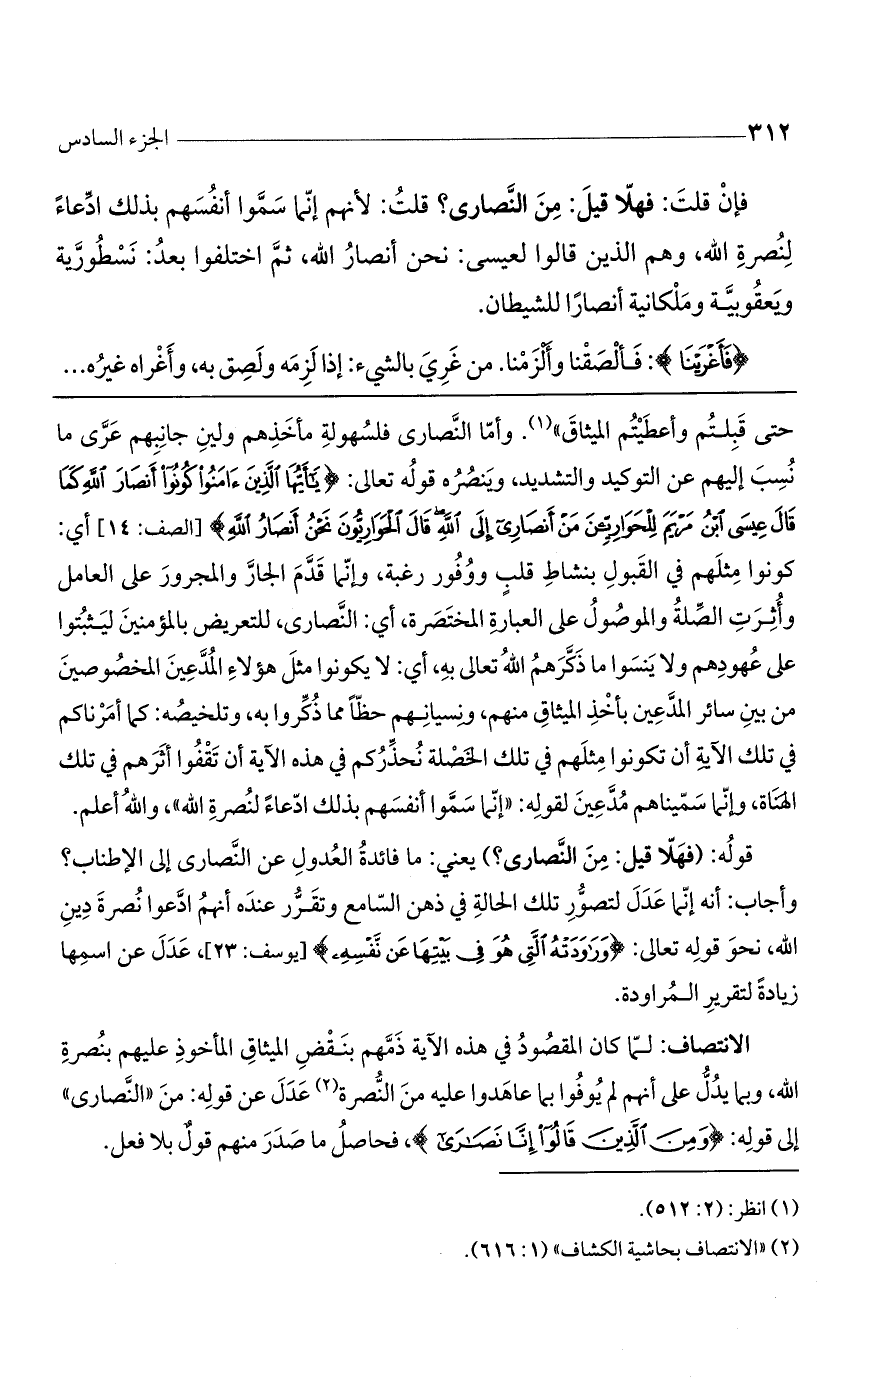 ٣١٢ الجزء السادس
فإنْ قلتَ: فهلّا قيلَ: مِنَ النَّصارى؟ قلتُ: لأنهم إنّما سَمَّوا أنفُسَهم بذلك ادِّعاءً
لِنُصرةِ الله، وهم الذين قالوا لعيسى: نحن أنصارُ الله، ثمَّ اختلفوا بعدُ: نَسْطُورَّية
ويَعقُوبيَّـة ومَلْكانية أنصارًا للشيطان.
﴿فَأَغْرَيْنَا﴾: فَـألْصَقْنا وأَلْزَمْنا. من غَرِيَ بالشيء: إذا لَزِمَه ولَصِق به، وأَغْراه غيرُه...
حتى قَبِلـتُم وأعطَيْتُم الميثاقَ»(١). وأمّا النَّصارى فلسُهولةِ مأخَذِهم ولينِ جانِبِهم عَرَّى ما
نُسِبَ إليهم عن التوكيد والتشديد، ويَنصُرُه قولُه تعالى: ﴿يَٰٓأَيُّهَا ٱلَّذِينَ ءَامَنُوا۟ كُونُوٓا۟ أَنصَارَ ٱللَّهِ كَمَا
قَالَ عِيسَى ٱبْنُ مَرْيَمَ لِلْحَوَارِيِّـۧنَ مَنْ أَنصَارِىٓ إِلَى ٱللَّهِ ۖ قَالَ ٱلْحَوَارِيُّونَ نَحْنُ أَنصَارُ ٱللَّهِ﴾ [الصف: ١٤] أي:
كونوا مِثلَهم في القَبولِ بنشاطِ قلبٍ ووُفُور رغبة، وإنّما قَدَّمَ الجارَّ والمجرورَ على العامل
وأُثِـرَتِ الصِّلةُ والموصُولُ على العبارةِ المختَصَرة، أي: النَّصارى، للتعريض بالمؤمنينَ ليَـثبُتوا
على عُهودِهم ولا يَنسَوا ما ذَكَّرَهمُ اللهُ تعالى بهِ، أي: لا يكونوا مثلَ هؤلاءِ المُدَّعينَ المخصُوصينَ
من بينِ سائر المدَّعين بأخْذِ الميثاقِ منهم، ونِسيانِـهم حظّاً مما ذُكِّروا به، وتلخيصُه: كما أمَرْناكم
في تلك الآيةِ أن تكونوا مِثلَهم في تلك الخَصْلة نُحذِّرُكم في هذه الآية أن تَقْفُوا أثَرَهم في تلك
الهَنَاة، وإنّما سَمّيناهم مُدَّعينَ لقولِه: «إنّما سَمَّوا أنفسَهم بذلك ادّعاءً لنُصرةِ الله»، واللهُ أعلم.
قولُه: (فهَلّا قيل: مِنَ النَّصارى؟) يعني: ما فائدةُ العُدولِ عن النَّصارى إلى الإطناب؟
وأجاب: أنه إنّما عَدَلَ لتصوُّرِ تلك الحالةِ في ذهن السّامع وتقَـرُّر عندَه أنهمُ ادَّعوا نُصرةَ دِينِ
الله، نحوَ قولِه تعالى: ﴿وَرَٰوَدَتْهُ ٱلَّتِى هُوَ فِى بَيْتِهَا عَن نَّفْسِهِۦ﴾ [يوسف: ٢٣]، عَدَلَ عن اسمِها
زيادةً لتقريرِ الـمُراودة.
الانتصاف: لـمّا كان المقصُودُ في هذه الآية ذَمَّهم بنَـقْضِ الميثاقِ المأخوذِ عليهم بنُصرةِ
الله، وبما يدُلُّ على أنهم لم يُوفُوا بما عاهَدوا عليه منَ النُّصرة(٢) عَدَلَ عن قولِه: منَ «النَّصارى»
إلى قولِه: ﴿وَمِنَ ٱلَّذِينَ قَالُوٓا۟ إِنَّا نَصَٰرَىٰٓ﴾، فحاصلُ ما صَدَرَ منهم قولٌ بلا فعل.
(١) انظر: (٢: ٥١٢).
(٢) «الانتصاف بحاشية الكشاف» (١: ٦١٦).